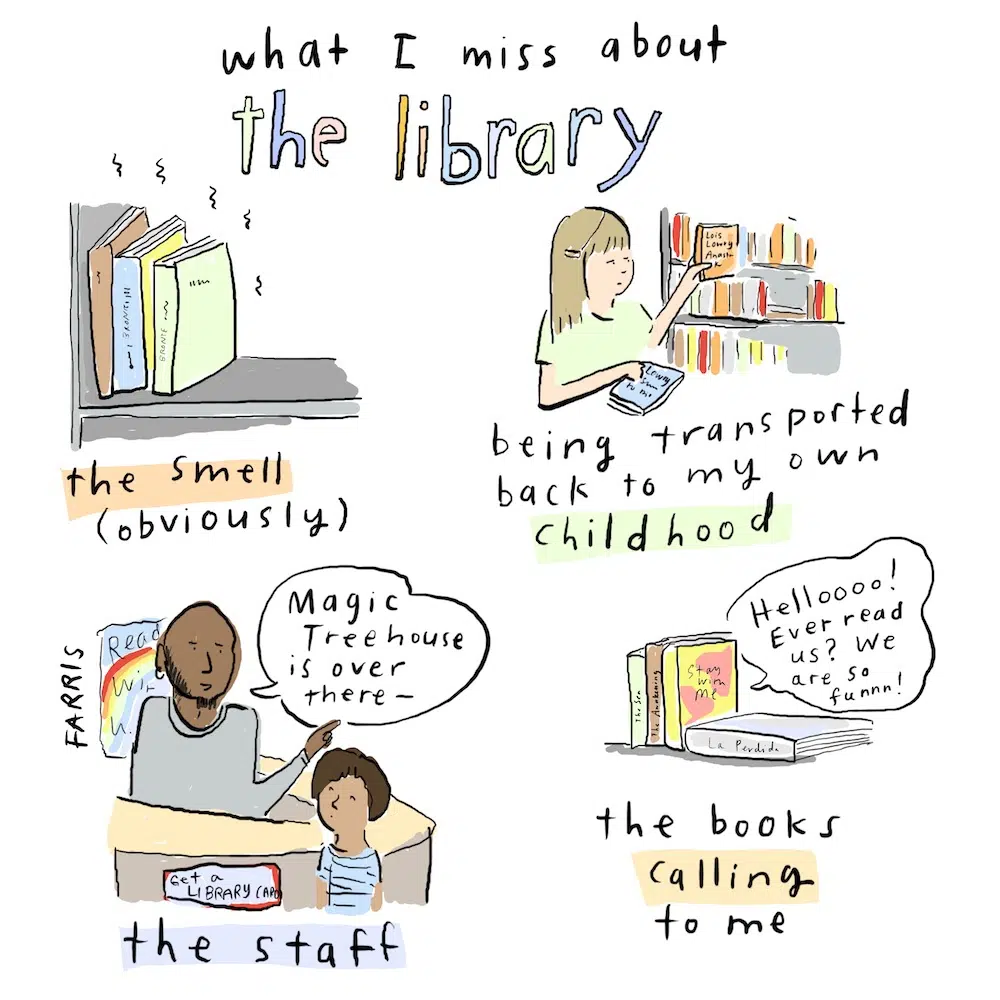 what I miss about
the library
BRONTE
BRONTE
the smell
(obviously)
Lois
Lowry
Anast-
K
Lowry
being transported
back to my own
childhood
FARRIS
Read
Magic
Treehouse
is over
there–
Get a
LIBRARY CARD
the staff
Helloooo!
Ever read
us? We
are so
funnn!
The Sea
The Awakening
Stay
with
Me
La Perdida
the books
calling
to me